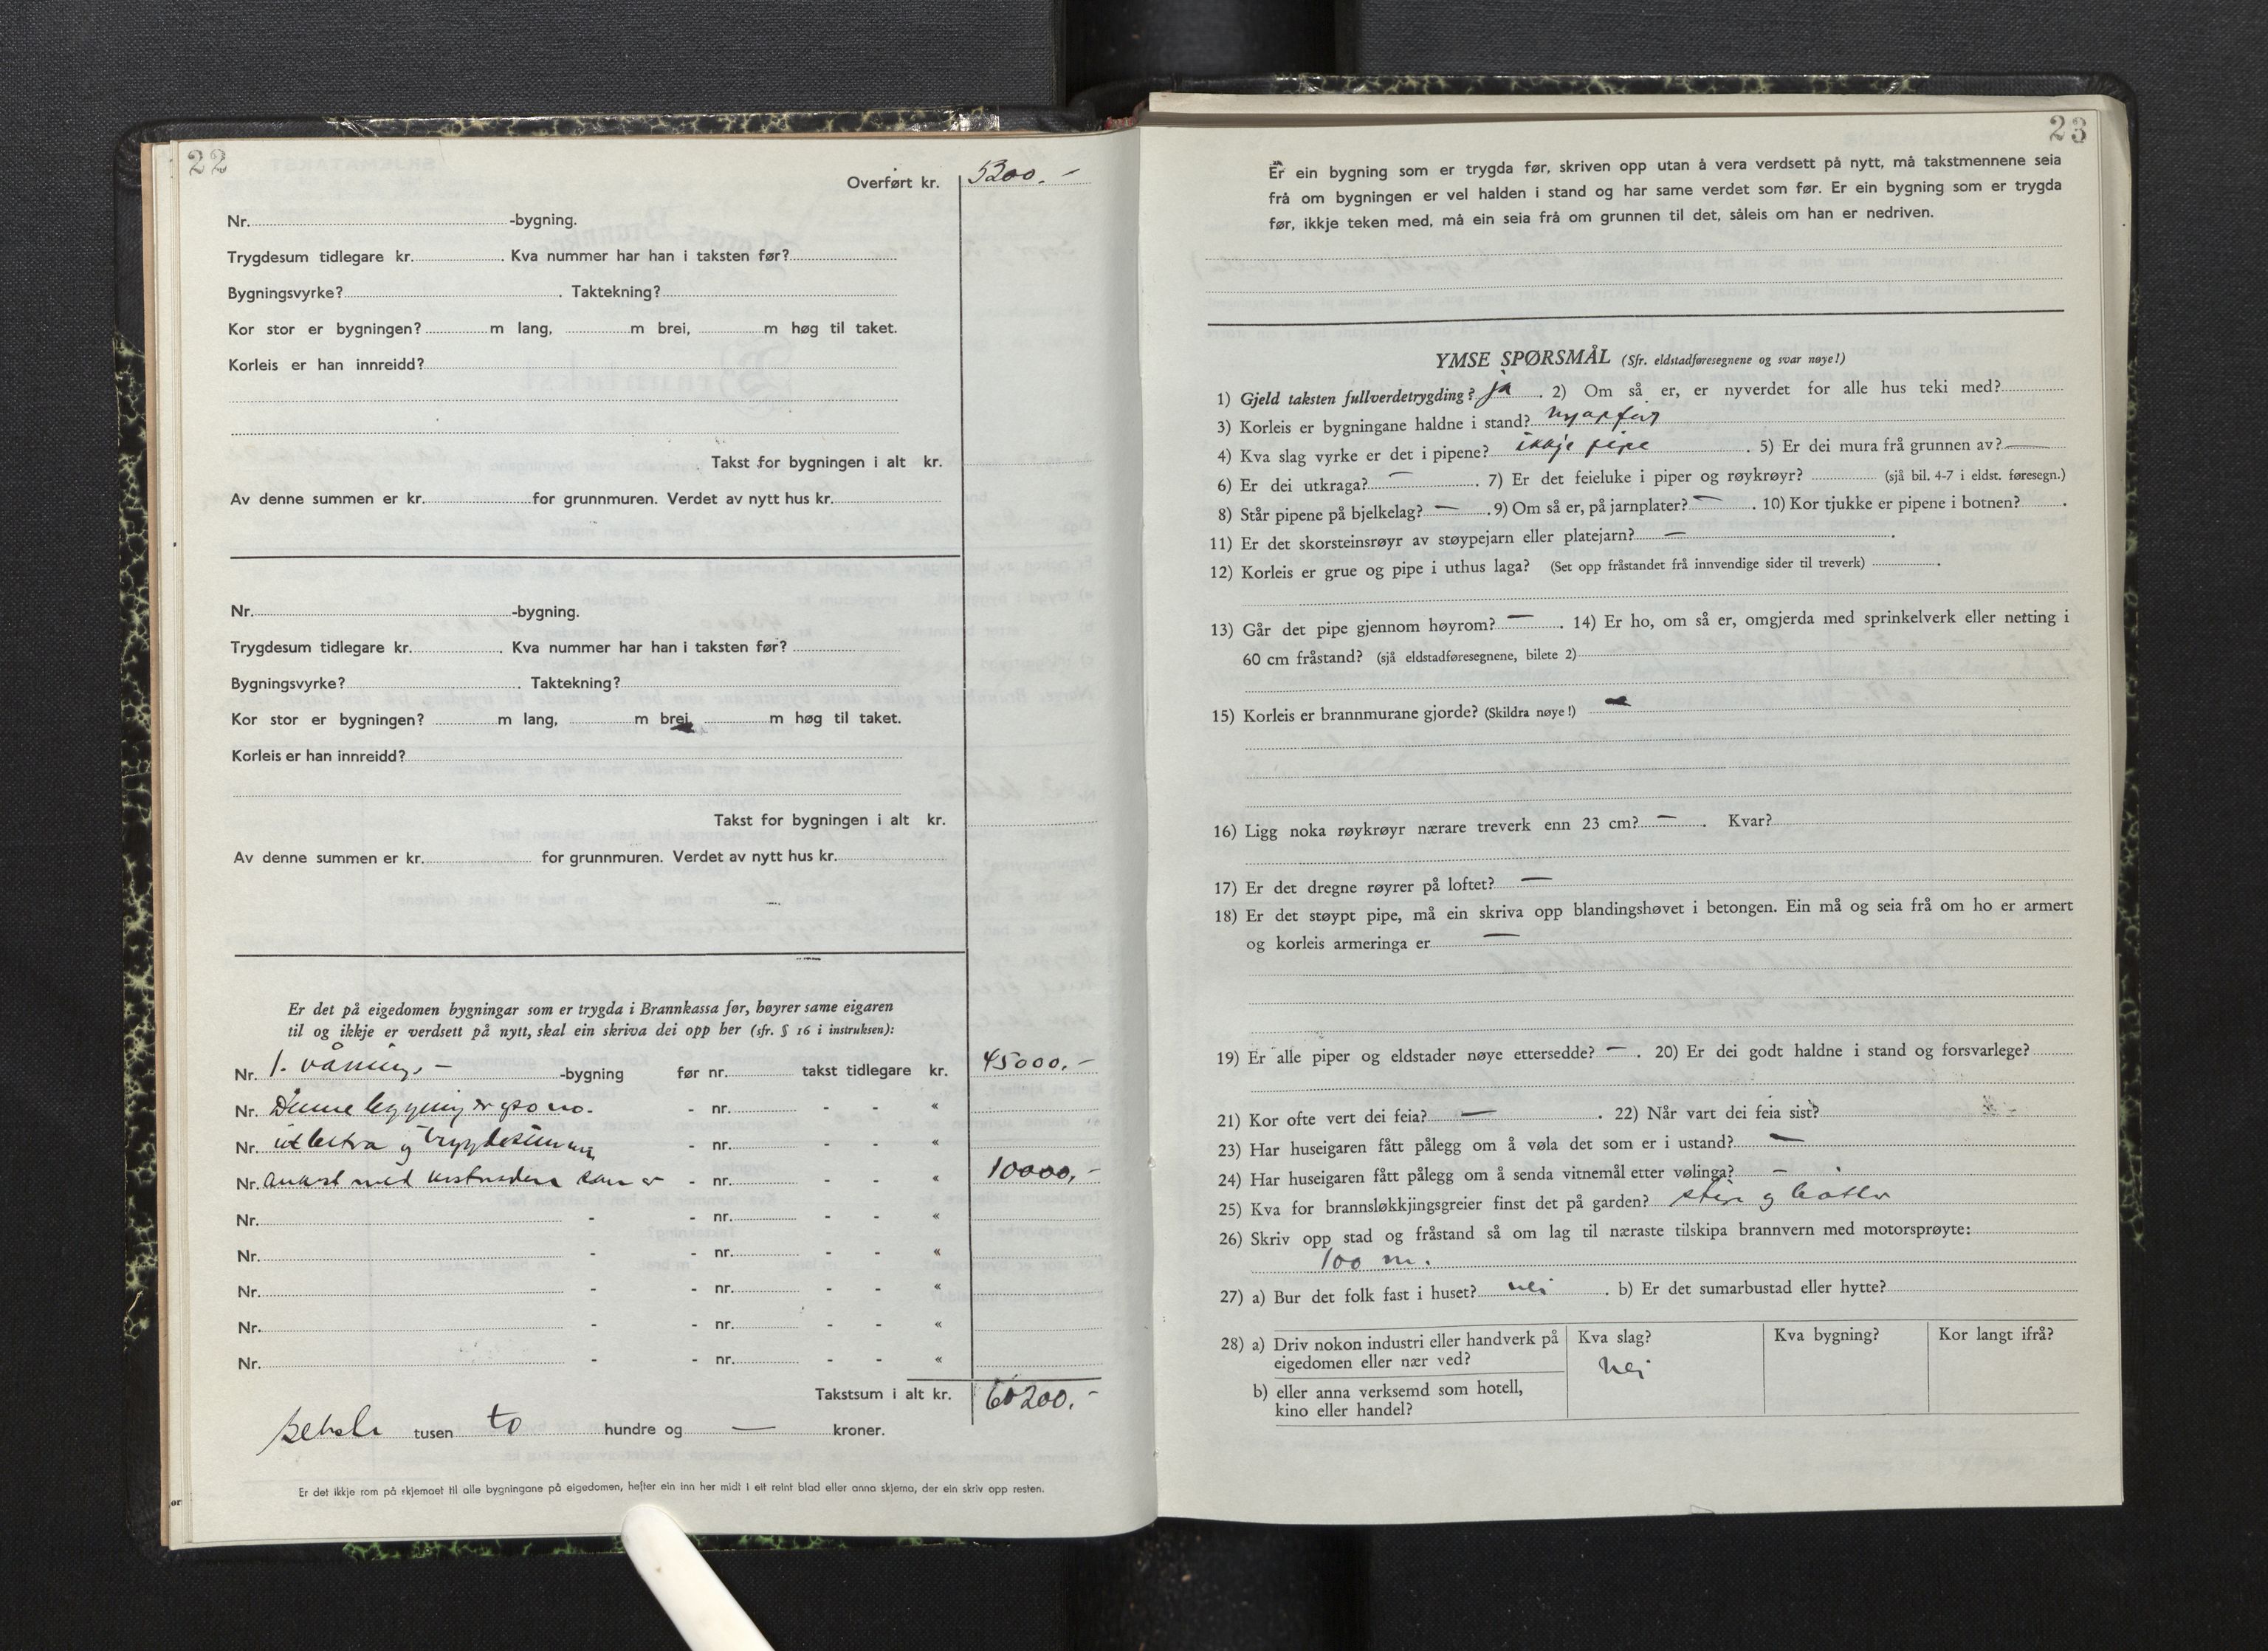 22
Overført kr. 5200.-
Nr. -bygning.
Trygdesum tidlegare kr. . Kva nummer har han i taksten før?
Bygningsvyrke? . Taktekning?
Kor stor er bygningen? m lang, m brei, m høg til taket.
Korleis er han innreidd?
Takst for bygningen i alt kr.
Av denne summen er kr. for grunnmuren. Verdet av nytt hus kr.
Nr. -bygning.
Trygdesum tidlegare kr. . Kva nummer har han i taksten før?
Bygningsvyrke? . Taktekning?
Kor stor er bygningen? m lang, m brei, m høg til taket.
Korleis er han innreidd?
Takst for bygningen i alt kr.
Av denne summen er kr. for grunnmuren. Verdet av nytt hus kr.
Er det på eigedomen bygningar som er trygda i Brannkassa før, høyrer same eigaren
til og ikkje er verdsett på nytt, skal ein skriva dei opp her (sfr. § 16 i instruksen):
Nr. 1. våning. - -bygning før nr. takst tidlegare kr. 45000.-
Nr. Denne bygning er - nr. - - «
Nr. og trygdesummen - nr. - - «
Nr. aukast med kostnaden som er - nr. - - « 10000.-
Nr. - - nr. - - «
Nr. - - nr. - - «
Nr. - - nr. - - «
Nr. - - nr. - - «
Nr. - - nr. - - «
Takstsum i alt kr. 60200.-
tusen to hundre og — kroner.
Er det ikkje rom på skjemaet til alle bygningane på eigedomen, hefter ein inn her midt i eit reint blad eller anna skjema, der ein skriv opp resten.
23
Er ein bygning som er trygda før, skriven opp utan å vera verdsett på nytt, må takstmennene seia
frå om bygningen er vel halden i stand og har same verdet som før. Er ein bygning som er trygda
før, ikkje teken med, må ein seia frå om grunnen til det, såleis om han er nedriven.
YMSE SPØRSMÅL (Sfr. eldstadføresegnene og svar nøye!)
1) Gjeld taksten fullverdetrygding? ja . 2) Om så er, er nyverdet for alle hus teki med?
3) Korleis er bygningane haldne i stand?
4) Kva slag vyrke er det i pipene? ikkje pipe . 5) Er dei mura frå grunnen av? —
6) Er dei utkraga? — . 7) Er det feieluke i piper og røykrøyr? (sjå bil. 4-7 i eldst. føresegn.)
8) Står pipene på bjelkelag? — . 9) Om så er, på jarnplater? — . 10) Kor tjukke er pipene i botnen? .
11) Er det skorsteinsrøyr av støypejarn eller platejarn? — .
12) Korleis er grue og pipe i uthus laga? (Set opp fråstandet frå innvendige sider til treverk) .
13) Går det pipe gjennom høyrom? — . 14) Er ho, om så er, omgjerda med sprinkelverk eller netting i
60 cm fråstand? (sjå eldstadføresegnene, bilete 2)
15) Korleis er brannmurane gjorde? (Skildra nøye!) —
16) Ligg noka røykrøyr nærare treverk enn 23 cm? — . Kvar?
17) Er det dregne røyrer på loftet? —
18) Er det støypt pipe, må ein skriva opp blandingshøvet i betongen. Ein må og seia frå om ho er armert
og korleis armeringa er —
19) Er alle piper og eldstader nøye ettersedde? — . 20) Er dei godt haldne i stand og forsvarlege?
21) Kor ofte vert dei feia? — . 22) Når vart dei feia sist?
23) Har huseigaren fått pålegg om å vøla det som er i ustand? —
24) Har huseigaren fått pålegg om å senda vitnemål etter vølinga? —
25) Kva for brannsløkkjingsgreier finst det på garden? stige og bøtter
26) Skriv opp stad og fråstand så om lag til næraste tilskipa brannvern med motorsprøyte:
100 m.
27) a) Bur det folk fast i huset? nei . b) Er det sumarbustad eller hytte?
28) a) Driv nokon industri eller handverk på
eigedomen eller nær ved?
b) eller anna verksemd som hotell,
kino eller handel?
Kva slag?
nei
Kva bygning?
Kor langt ifrå?